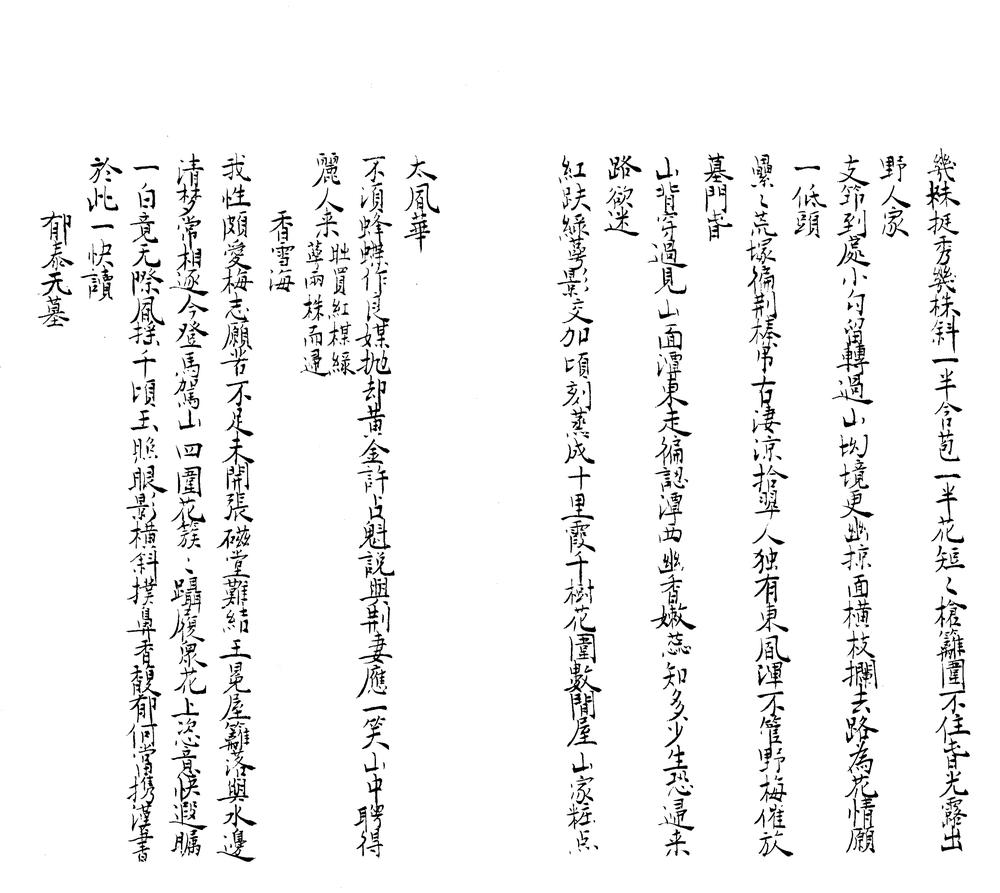 幾株挺秀幾株斜一半含苞一半花短〻槍籬圍不住春光露出
野人家
支筇到處小勾留轉過山坳境更幽掠面橫枝攔去路為花情願
一低頭
纍〻荒塚徧荆榛吊古淒涼拾翠人独有東風渾不管野梅催放
墓門春
山背穿過見山面潭東走徧認潭西幽香嫩蕊知多少生恐歸来
路欲迷
紅跌綠萼影交加頃刻蒸成十里霞千樹花圍數間屋山家粧点
太風華
不須蜂蝶作良媒抛却黃金許占魁說與荆妻應一笑山中聘得
麗人来
買紅梅綠
萼兩株而歸
香雪海
我性頗愛梅志願苦不足未開張磁堂難結王冕屋籬落與水邊
清梦常相逐今登馬駕山四圍花簇〻躡履衆花上恣意快遐矚
一白竟无際風搖千頃玉瞧眼影橫斜撲鼻香馥郁何當携漢書
於此一快讀
郁泰元墓